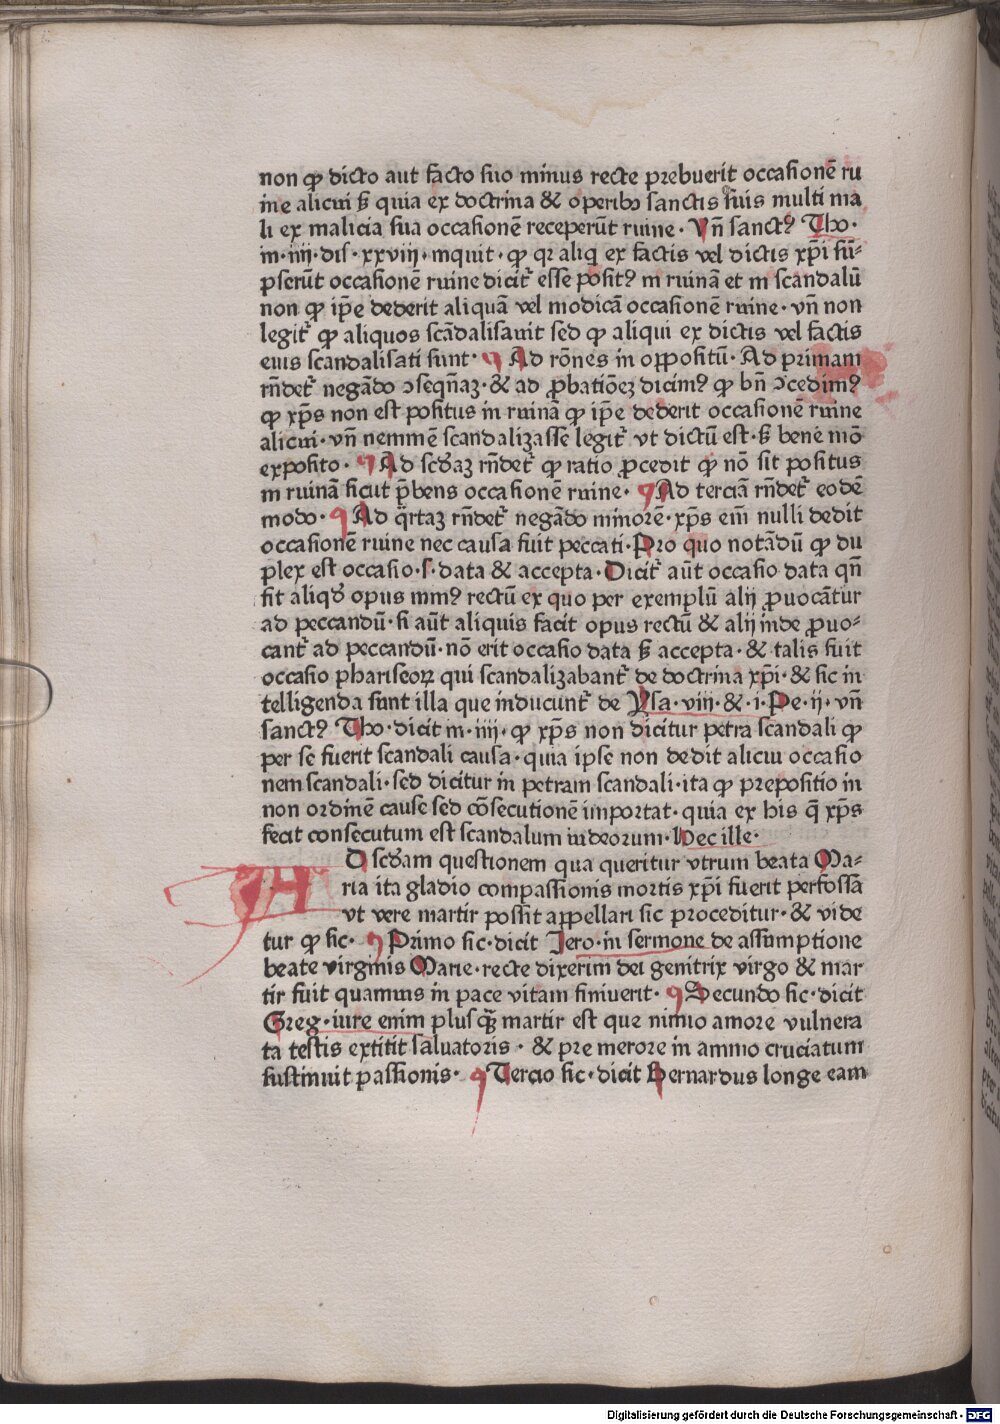 non ꝙ dicto aut facto suo minus recte prebuerit occasionē ru
ine alicui sꝫ quia ex doctrina & operibꝰ sanctis suis multi ma
li ex malicia sua occasionē receperūt ruine· Vn̄ sanctꝰ Tho·
in·iiij·dis·xxviij·inquit·ꝙ qr aliqͥ ex factis vel dictis xp̄i sū⸗
pserūt occasionē ruine dicitᷣ esse positꝰ in ruinā et in scandalū
non ꝙ ip̄e dederit aliquā vel modicā occasionē ruine· vn̄ non
legitᷣ ꝙ aliquos scādalisauit sed ꝙ aliqui ex dictis vel factis
eius scandalisati sunt· ¶ Ad rōnes in oppositū· Ad primam
rn̄detᷣ negādo ↄseqn̄aꝫ· & ad ꝓbatiōeꝫ dicimꝰ ꝙ bn̄ ↄcedimꝰ
ꝙ xp̄s non est positus in ruinā ꝙ ip̄e dederit occasionē ruine
alicui· vn̄ neminē scandalizasse legitᷣ vt dictū est· sꝫ bene mō
exposito· ¶ Ad scd̄aꝫ rn̄detᷣ ꝙ ratio ꝓcedit ꝙ nō sit positus
in ruinā sicut p̄bens occasionē ruine· ¶ Ad terciā rn̄detᷣ eodē
modo· ¶ Ad qͣrtaꝫ rn̄detᷣ negādo minorē· xp̄s eīn nulli dedit
occasionē ruine nec causa fuit peccati· Pro quo notādū ꝙ du
plex est occasio·s·data & accepta· Dicitᷣ aūt occasio data qn̄
fit aliqd̄ opus minꝰ rectū ex quo per exemplū alij ꝓuocātur
ad peccandū· si aūt aliquis facit opus rectū & alij inde ꝓuo⸗
cantᷣ ad peccandū· nō erit occasio data sꝫ accepta· & talis fuit
occasio phariseoꝝ qui scandalizabantᷣ de doctrina xp̄i· & sic in
telligenda sunt illa que inducuntᷣ de Ysa·viij·& ·i·Pe·ij· vn̄
sanctꝰ Tho·dicit in·iiij·ꝙ xp̄s non dicitur petra scandali ꝙ
per se fuerit scandali causa· quia ipse non dedit alicui occasio
nem scandali· sed dicitur in petram scandali· ita ꝙ prepositio in
non ordinē cause sed cōsecutionē importat· quia ex his q̄ xp̄s
fecit consecutum est scandalum iudeorum· Hec ille·
AD scd̄am questionem qua queritur vtrum beata Ma⸗
ria ita gladio compassionis mortis xp̄i fuerit perfossa
vt vere martir possit appellari sic proceditur· & vide
tur ꝙ sic· ¶ Primo sic·dicit Jero·in sermone de assumptione
beate virginis Marie· recte dixerim dei genitrix virgo & mar
tir fuit quamuis in pace vitam finiuerit· ¶ Secundo sic·dicit
Greg·iure enim plusqꝫ martir est que nimio amore vulnera
ta testis extitit saluatoris· & pre merore in animo cruciatum
sustinuit passionis· ¶ Tercio sic·dicit Bernardus longe eam
Digitalisierung gefördert durch die Deutsche Forschungsgemeinschaft - DFG